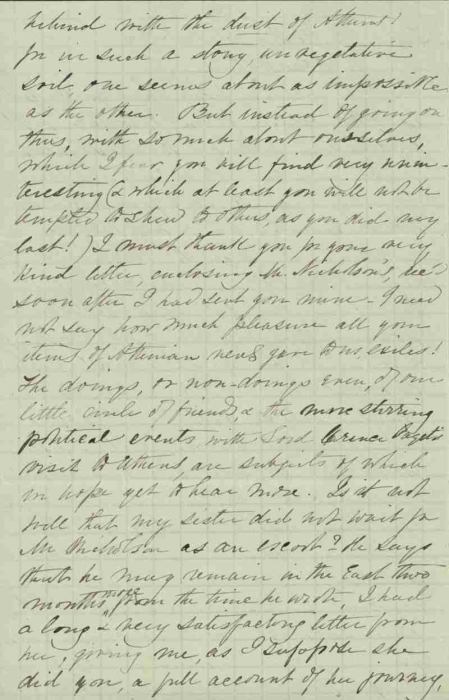 behind with the dust of Athens!
for in such a stony, unvegetative
soil, one seems about as impossible
as the other. But instead of going on
thus, with so much about ourselves,
which I fear you will find very unin-
teresting (& which at least you will not be
tempted to shew to others, as you did my
last!) I must thank you for your very
kind letter, enclosing Mr. Nicholson's, rec'd
soon after I had sent you mine - I need
not say how much pleasure all your
items of Athenian news gave to us, exiles!
The doings, or non-doings even, of our
little circle of friends & the more stirring
political events, with Lord Clarence Paget's
visit to Athens, are subjects of which
we hope yet to hear more. Is it not
well that my sister did not wait for
Mr Nicholson as an escort? He says
that he may remain in the East two
months more from the time he wrote, I had
a long & very satisfactory letter from
her, giving me, as I suppose she
did you, a full account of her journey,